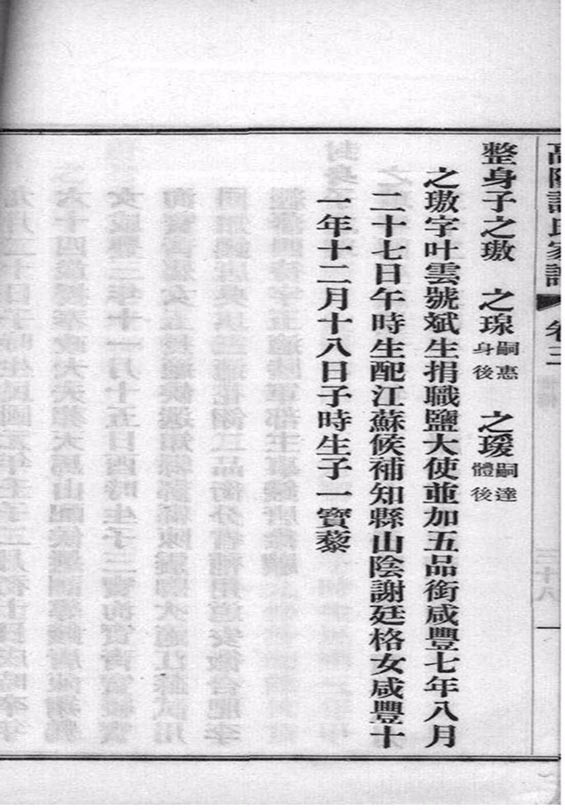 高陽許氏家譜 卷三
整身子之璈 之㻏嗣惠身後 之瑗嗣達體後
之璈字叶雲號斌生捐職鹽大使並加五品銜咸豐七年八月
二十七日午時生配江蘇候補知縣山陰謝廷格女咸豐十
一年十二月十八日子時生子一寶藜
三十八